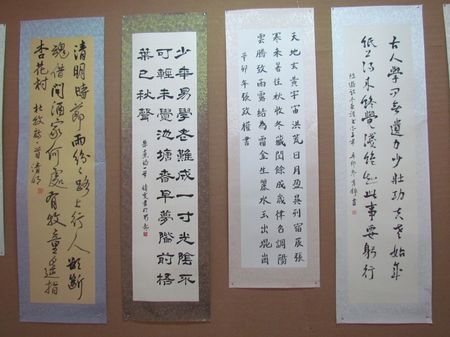 清明時節雨紛紛路上行人欲斷
魂借問酒家何處有牧童遙指
杏花村 杜牧詩一首清明
少年易學老難成一寸光陰不
可輕未覺池塘春草夢階前梧
葉已秋聲
天地玄黃宇宙洪荒日月盈昃列宿辰張
寒來暑往秋收冬藏閏餘成歲律呂調陽
雲騰致雨露結為霜金生麗水玉出崑崗
辛卯年張效權書
古人學問無遺力少壯功夫老始成
紙上得來終覺淺絕知此事要躬行